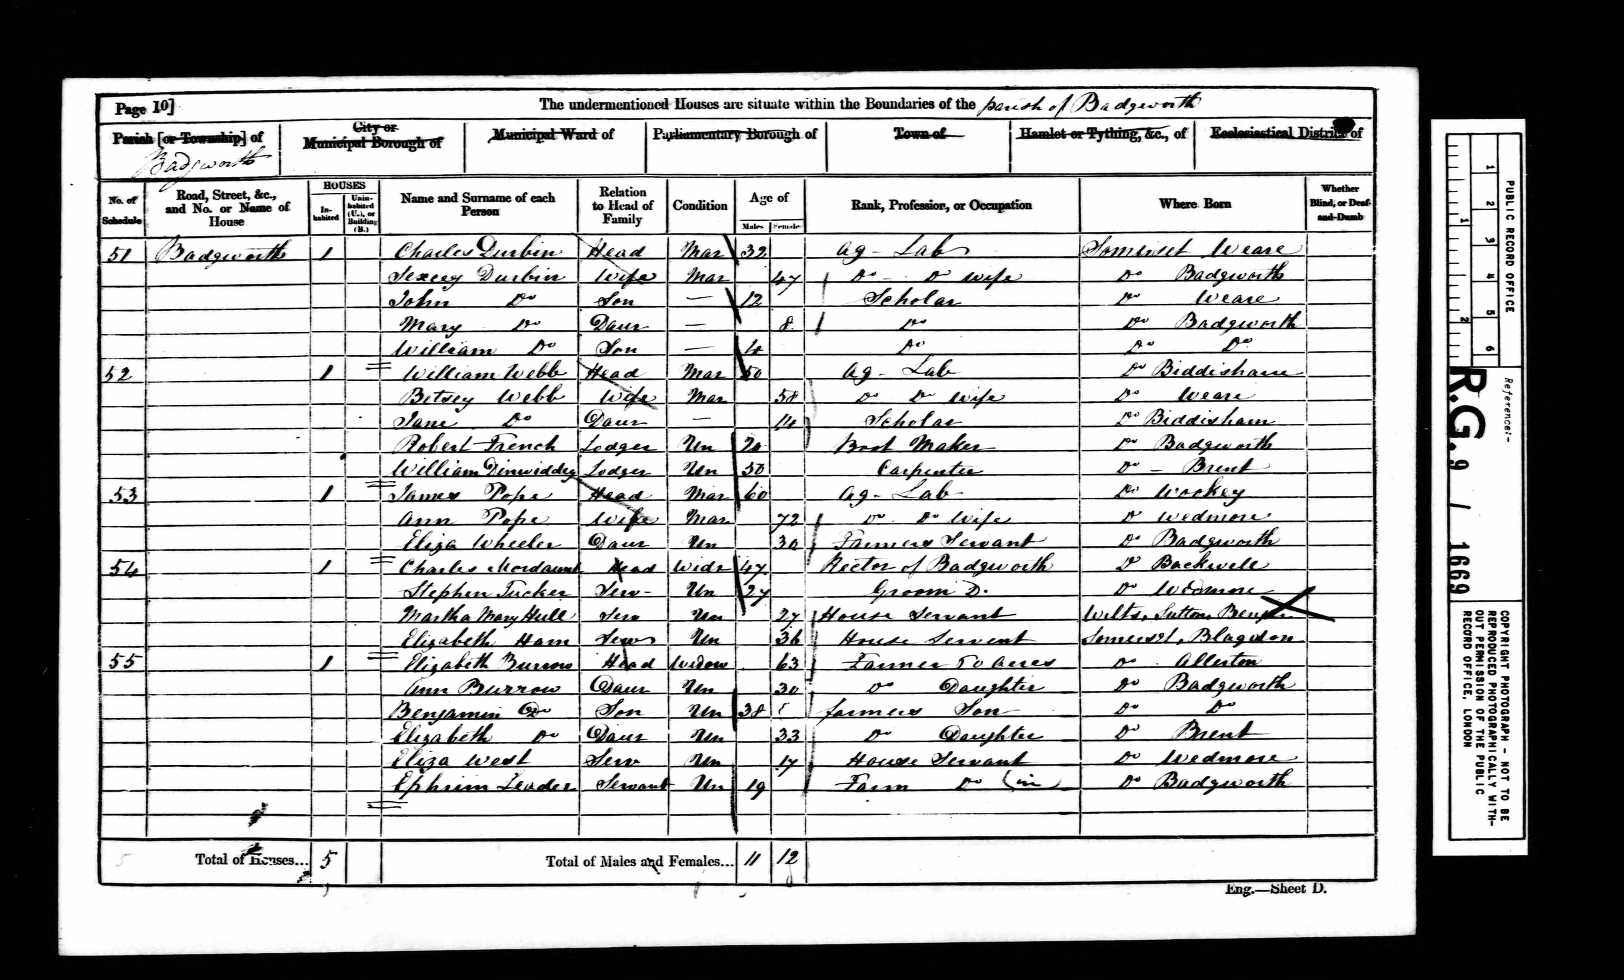 Page 10]
The undermentioned Houses are situate within the Boundaries of the parish of Badgworth
Parish [or Township] of
Badgworth
City or
Municipal Borough of
Municipal Ward of
Parliamentary Borough of
Town of
Hamlet or Tything, &c., of
Ecclesiastical District of
No. of Schedule
Road, Street, &c., and No. or Name of House
HOUSES
In-habited
Unin-habited (U.), or Building (B.)
Name and Surname of each Person
Relation to Head of Family
Condition
Age of
Males
Females
Rank, Profession, or Occupation
Where Born
Whether Blind, or Deaf-and-Dumb
51 Badgworth 1 Charles Durbin Head Mar 32 Ag - Lab Somerset Weare
Durbin Wife Mar 47 Do - Do wife Do Badgworth
John Do Son — 12 Scholar Do Weare
Mary Do Daur — 8 Do Do Badgworth
William Do Son — 4 Do Do Do
52 1 William Webb Head Mar 50 Ag - Lab Do Biddisham
Betsey Webb Wife Mar 58 Do Do Wife Do Weare
Jane Do Daur — 14 Scholar Do Biddisham
Robert French Lodger Un 20 Boot Maker Do Badgworth
William Dinwiddey Lodger Un 50 Carpenter Do - Brent
53 1 James Pope Head Mar 60 Ag - Lab Do Wookey
Ann Pope Wife Mar 72 Do Do Wife Do Wedmore
Eliza Wheeler Daur Un 30 Farmers Servant Do Badgworth
54 1 Charles Mordaunt Head Widr 47 Rector of Badgworth Do Backwell
Stephen Tucker Serv - Un 27 Groom D. Do Wedmore
Martha Mary Hull Serv Un 27 House Servant Wilts, Sutton
Elizabeth Ham Serv Un 36 House Servent Somerset, Blagdon
55 1 Elizabeth Burrow Head Widow 63 Farmer 70 Acres Do Allerton
Ann Burrow Daur Un 30 Do Daughter Do Badgworth
Benjamin Do Son Un 38 farmers Son Do Do
Elizabeth Do Daur Un 33 Do Daughter Do Brent
Eliza West Serv Un 17 House Servant Do Wedmore
Ephrim Leader Servant Un 19 Farm Do (in Do Badgworth
Total of Houses... 5
Total of Males and Females... 11 12
Eng.—Sheet D.
PUBLIC RECORD OFFICE
1 2 3 4 5 6
1 2
Reference:-
R.G. 9 / 1669
COPYRIGHT PHOTOGRAPH - NOT TO BE
REPRODUCED PHOTOGRAPHICALLY WITH-
OUT PERMISSION OF THE PUBLIC
RECORD OFFICE, LONDON